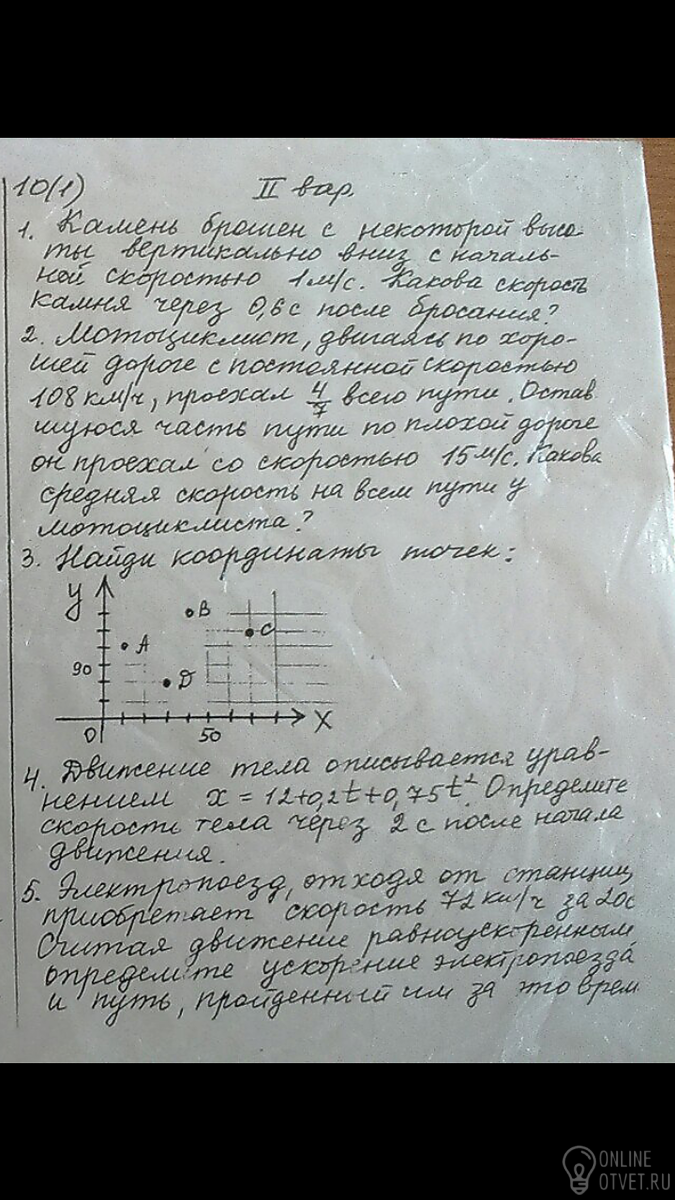 10(1) II вар.
1. Камень брошен с некоторой высо-
ты вертикально вниз с началь-
ной скоростью 1 м/с. Какова скорость
камня через 0,6 с после бросания?
2. Мотоциклист, двигаясь по хоро-
шей дороге с постоянной скоростью
108 км/ч, проехал 4/7 всего пути. Остав
шуюся часть пути по плохой дороге
он проехал со скоростью 15 м/с. Какова
средняя скорость на всем пути у
мотоциклиста?
3. Найди координаты точек:
У
В
С
А
90
D
0
50
Х
4. Движение тела описывается урав-
нением x = 12+0,2t+0,75t². Определите
скорость тела через 2 с после начала
движения.
5. Электропоезд, отходя от станции,
приобретает скорость 72 км/ч за 20с
Считая движение равноускоренным
определите ускорение электропоезда
и путь, пройденный им за это врем
ONLINE
OTVET.RU